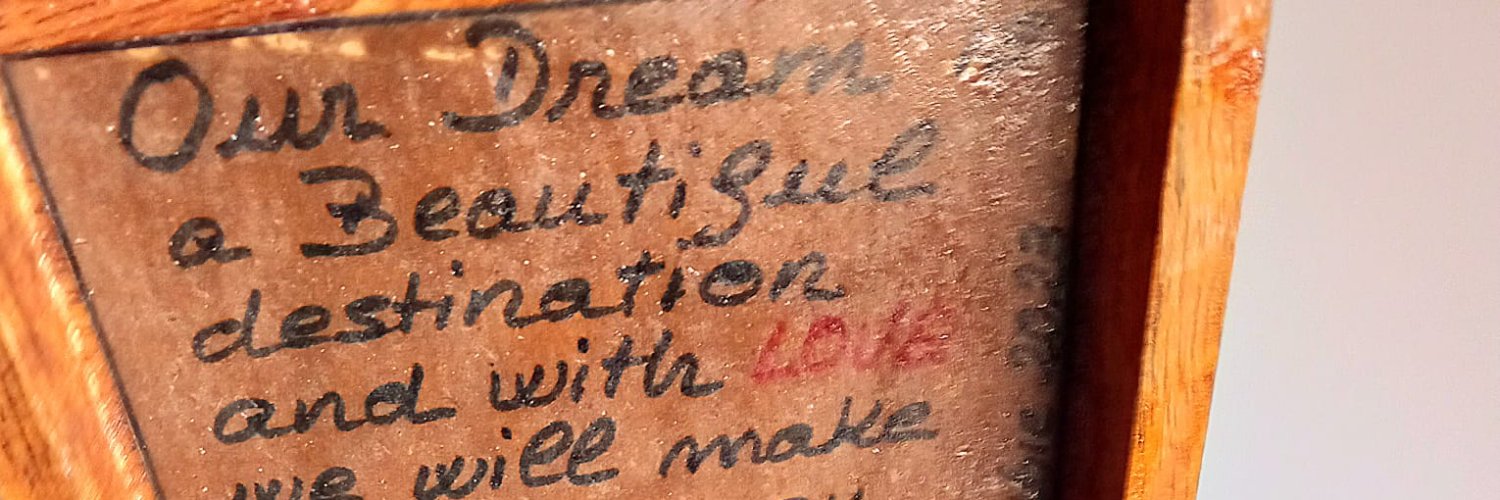 Our Dream
a Beautiful
destination
and with LOVE
we will make